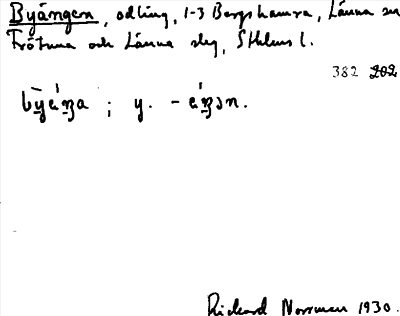 Byängen, odling, 1-3 Bergshamra, Länna sn
Frötuna och Länna slg, Sthlms l.
382 202
by̱ä́ŋa ; y. - ä́ŋən.
Rickard Norrman 1930.